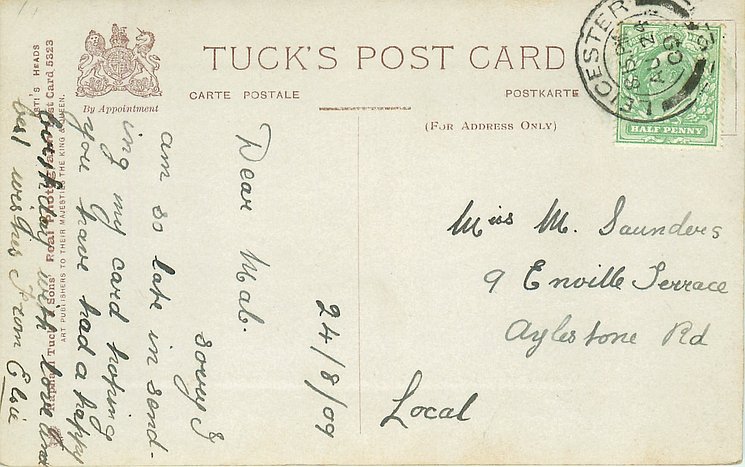 TUCK'S POST CARD
CARTE POSTALE
POSTKARTE
(FOR ADDRESS ONLY)
By Appointment
Raphael Tuck & Sons' "Real Photograph" Post Card 5323
ART PUBLISHERS TO THEIR MAJESTIES THE KING & QUEEN.
LEICESTER
HALF PENNY
24/8/09
Dear Mab.
sorry I
am so late in send-
ing my card hoping
you have had a happy
birthday with love and
best wishes from Elsie
Miss M. Saunders
9 Enville Terrace
Aylestone Rd
Local